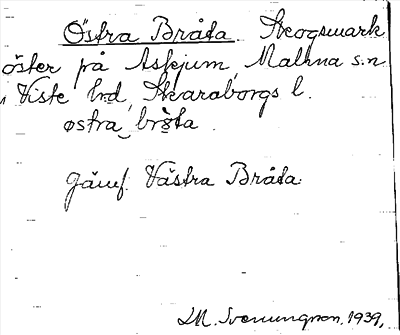 Östra Bråta. Skogsmark
öster på Askjum, Malma s:n
Viste hd, Skaraborgs l.
østra bråta.
Jämf. Västra Bråta.
M. Svenungson. 1939,